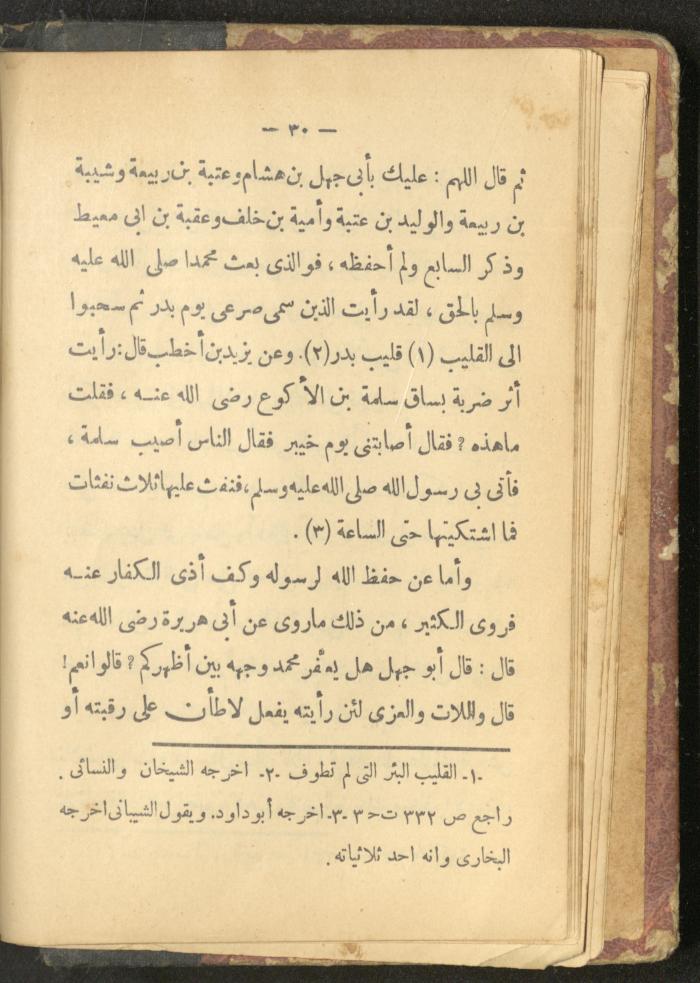 — ٣٠ —
ثم قال اللهم : عليك بأبى جهل بن هشام وعتبة بن ربيعة وشيبة
بن ربيعة والوليد بن عتبة وأمية بن خلف وعقبة بن ابى معيط
وذكر السابع ولم أحفظه ، فوالذى بعث محمدا صلى الله عليه
وسلم بالحق ، لقد رأيت الذين سمى صرعى يوم بدر ثم سحبوا
الى القليب (١) قليب بدر(٢). وعن يزيد بن أخطب قال : رأيت
أثر ضربة بساق سلمة بن الأكوع رضى الله عنه ، فقلت
ماهذه ? فقال أصابتنى يوم خيبر فقال الناس أصيب سلمة ،
فأتى بى رسول الله صلى الله عليه وسلم ، فنفث عليها ثلاث نفثات
فما اشتكيتها حتى الساعة (٣) .
وأما عن حفظ الله لرسوله وكف أذى الكفار عنه
فروى الكثير ، من ذلك ماروى عن أبى هريرة رضى الله عنه
قال : قال أبو جهل هل يعفّر محمد وجهه بين أظهركم ? قالوا نعم !
قال واللات والعزى لئن رأيته يفعل لاطأن على رقبته أو
-١- القليب البئر التى لم تطوف -٢- اخرجه الشيخان والنسائى .
راجع ص ٣٣٢ ت ح ٣ -٣- اخرجه أبو داود. ويقول الشيبانى اخرجه
البخارى وانه احد ثلاثياته .